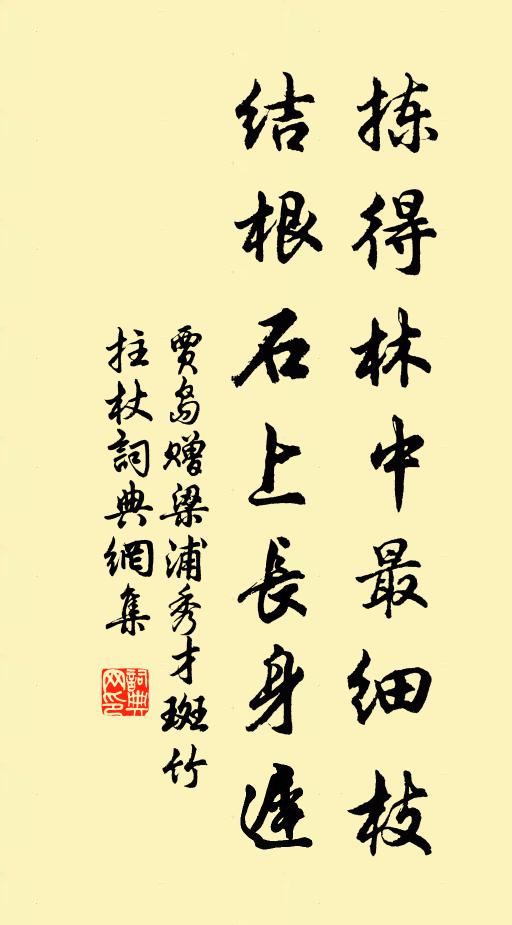 拣得林中最细枝
结根石上長身遅
贾岛赠梁浦秀才斑竹
拄杖詞典網集
詞典网印